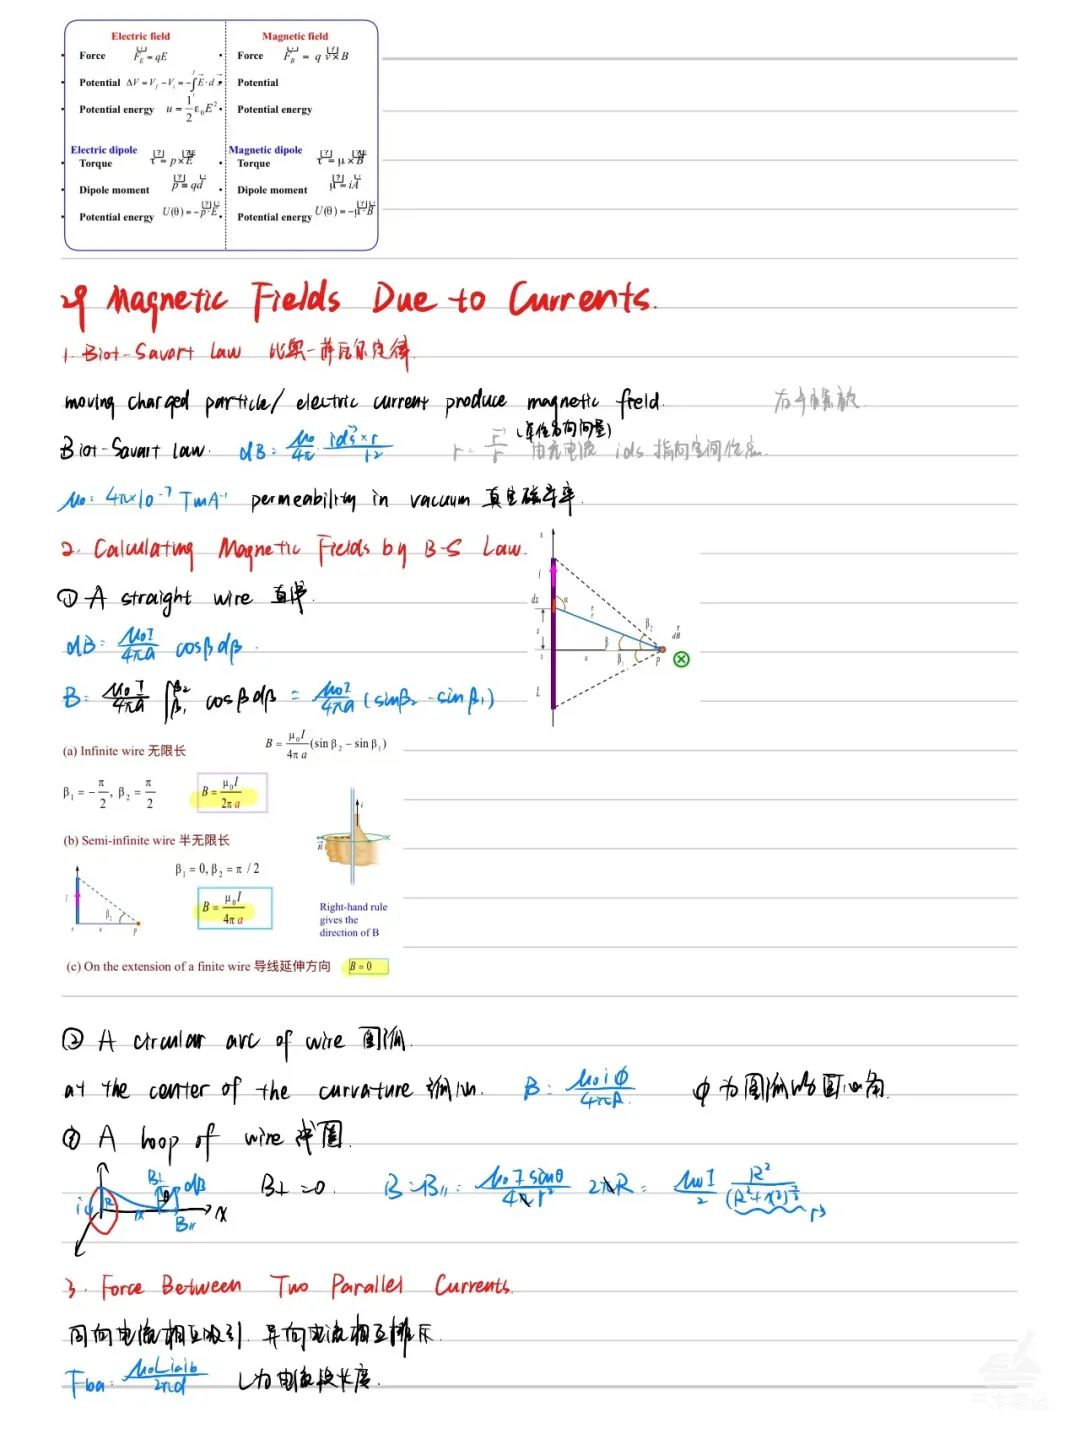 Electric field
Magnetic field
Force F_E = qE
Force F_B = q v × B
Potential ΔV = V_f − V_i = −∫ E · d s
Potential
Potential energy u = 1/2 ε₀E²
Potential energy
Electric dipole
Magnetic dipole
Torque τ = p × E
Torque τ = μ × B
Dipole moment p = qd
Dipole moment μ = iA
Potential energy U(θ) = −p · E
Potential energy U(θ) = −μ · B
29 Magnetic Fields Due to Currents.
1. Biot-Savart Law 比奥-萨瓦尔定律.
moving charged particle/ electric current produce magnetic field.
右手螺旋
(单位方向向量)
Biot-Savart Law. dB = μ₀/4π · ids × r / r²
r = r/r 由电流 ids 指向空间位点.
μ₀: 4π×10⁻⁷ TmA⁻¹ permeability in vacuum 真空磁导率.
2. Calculating Magnetic Fields by B-S Law.
① A straight wire 直导.
dB = μ₀I/4πa cosβdβ.
B = μ₀I/4πa ∫β₁^β₂ cosβdβ = μ₀I/4πa (sinβ₂ - sinβ₁)
x
i
ds
α
r
s
β
β₂
β₁
a
P
dB
L
B = μ₀I/4πa (sin β₂ − sin β₁)
(a) Infinite wire 无限长
β₁ = −π/2, β₂ = π/2
B = μ₀I/2πa
(b) Semi-infinite wire 半无限长
β₁ = 0, β₂ = π / 2
B = μ₀I/4πa
β₂
P
i
B
Right-hand rule
gives the
direction of B
(c) On the extension of a finite wire 导线延伸方向 B = 0
② A circular arc of wire 圆弧.
at the center of the curvature 弧心. B = μ₀iϕ/4πR ϕ为圆弧的圆心角.
③ A loop of wire 线圈.
i R x B⊥ θ dB B∥ x
B⊥ = 0. B = B∥ = μ₀I sinθ/4πr² 2πR = μ₀I/2 R²/(R²+x²)^3/2 r³
3. Force Between Two Parallel Currents.
同向电流相互吸引, 异向电流相互排斥.
Fba = μ₀Liaib/2πd L为电流段长度.